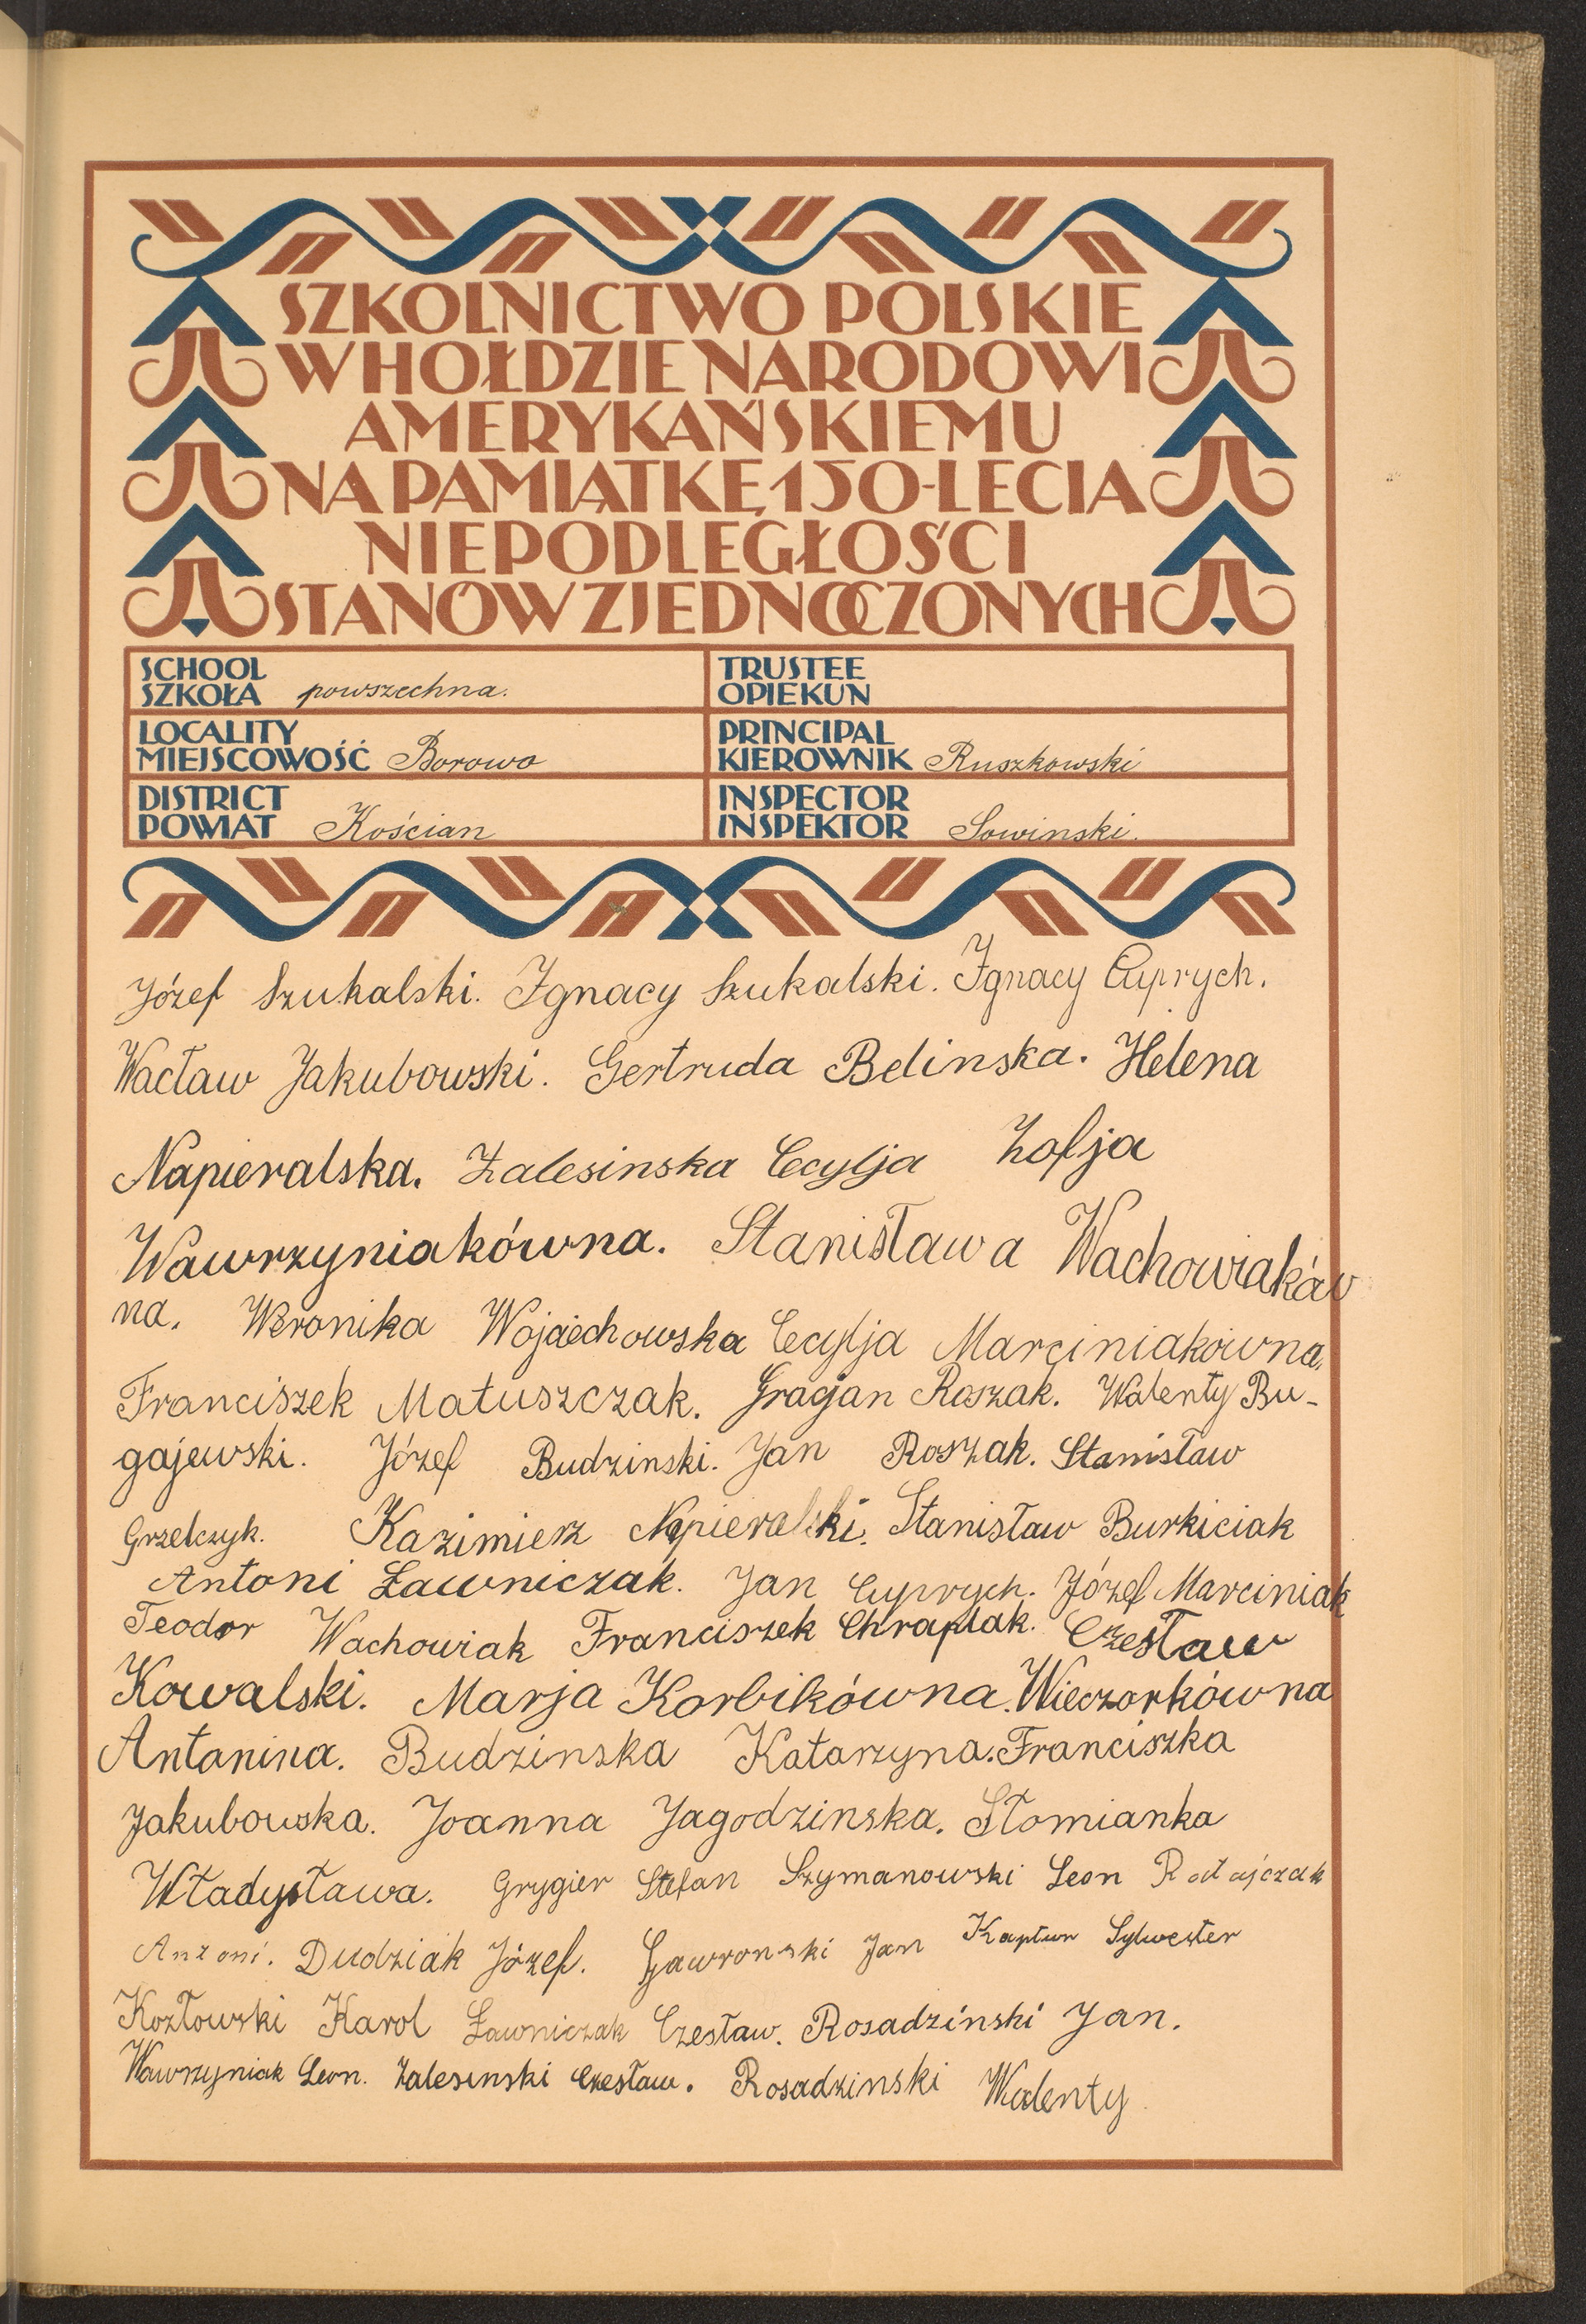 SZKOLNICTWO POLSKIE
W HOŁDZIE NARODOWI
AMERYKAŃSKIEMU
NA PAMIĄTKĘ 150-LECIA
NIEPODLEGŁOŚCI
STANÓW ZJEDNOCZONYCH
SCHOOL
SZKOŁA powszechna.
TRUSTEE
OPIEKUN
LOCALITY
MIEJSCOWOŚĆ Borowo
PRINCIPAL
KIEROWNIK Ruszkowski
DISTRICT
POWIAT Kościan
INSPECTOR
INSPEKTOR Sowinski.
Józef Szukalski. Ignacy Szukalski. Ignacy Cyprych.
Wacław Jakubowski. Gertruda Belinska. Helena
Napieralska. Zalesinska Cecylja Zofja
Wawrzyniakówna. Stanisława Wachowiaków
na. Weronika Wojciechowska Cecylja Marciniakówna.
Franciszek Matuszczak. Roszak. Walenty Bu-
gajewski. Józef Budzinski. Jan Roszak. Stanisław
Grzelczyk. Kazimierz Napieralski. Stanisław Burkiciak
Antoni Ławniczak. Jan Cyprych. Józef Marciniak
Teodor Wachowiak Franciszek Chraplak. Czesław
Kowalski. Marja Korbikówna. Wieczorkówna
Antanina. Budzinska Katarzyna. Franciszka
Jakubowska. Joanna Jagodzinska. Słomianka
Władysława. Grygier Stefan Szymanowski Leon Ratajczak
Antoni. Dudziak Józef. Gawronski Jan Kaptur Sylwester
Kozłowski Karol Ławniczak Czesław. Rosadzinski Jan.
Wawrzyniak Leon. Zalesinski Czesław. Rosadzinski Walenty